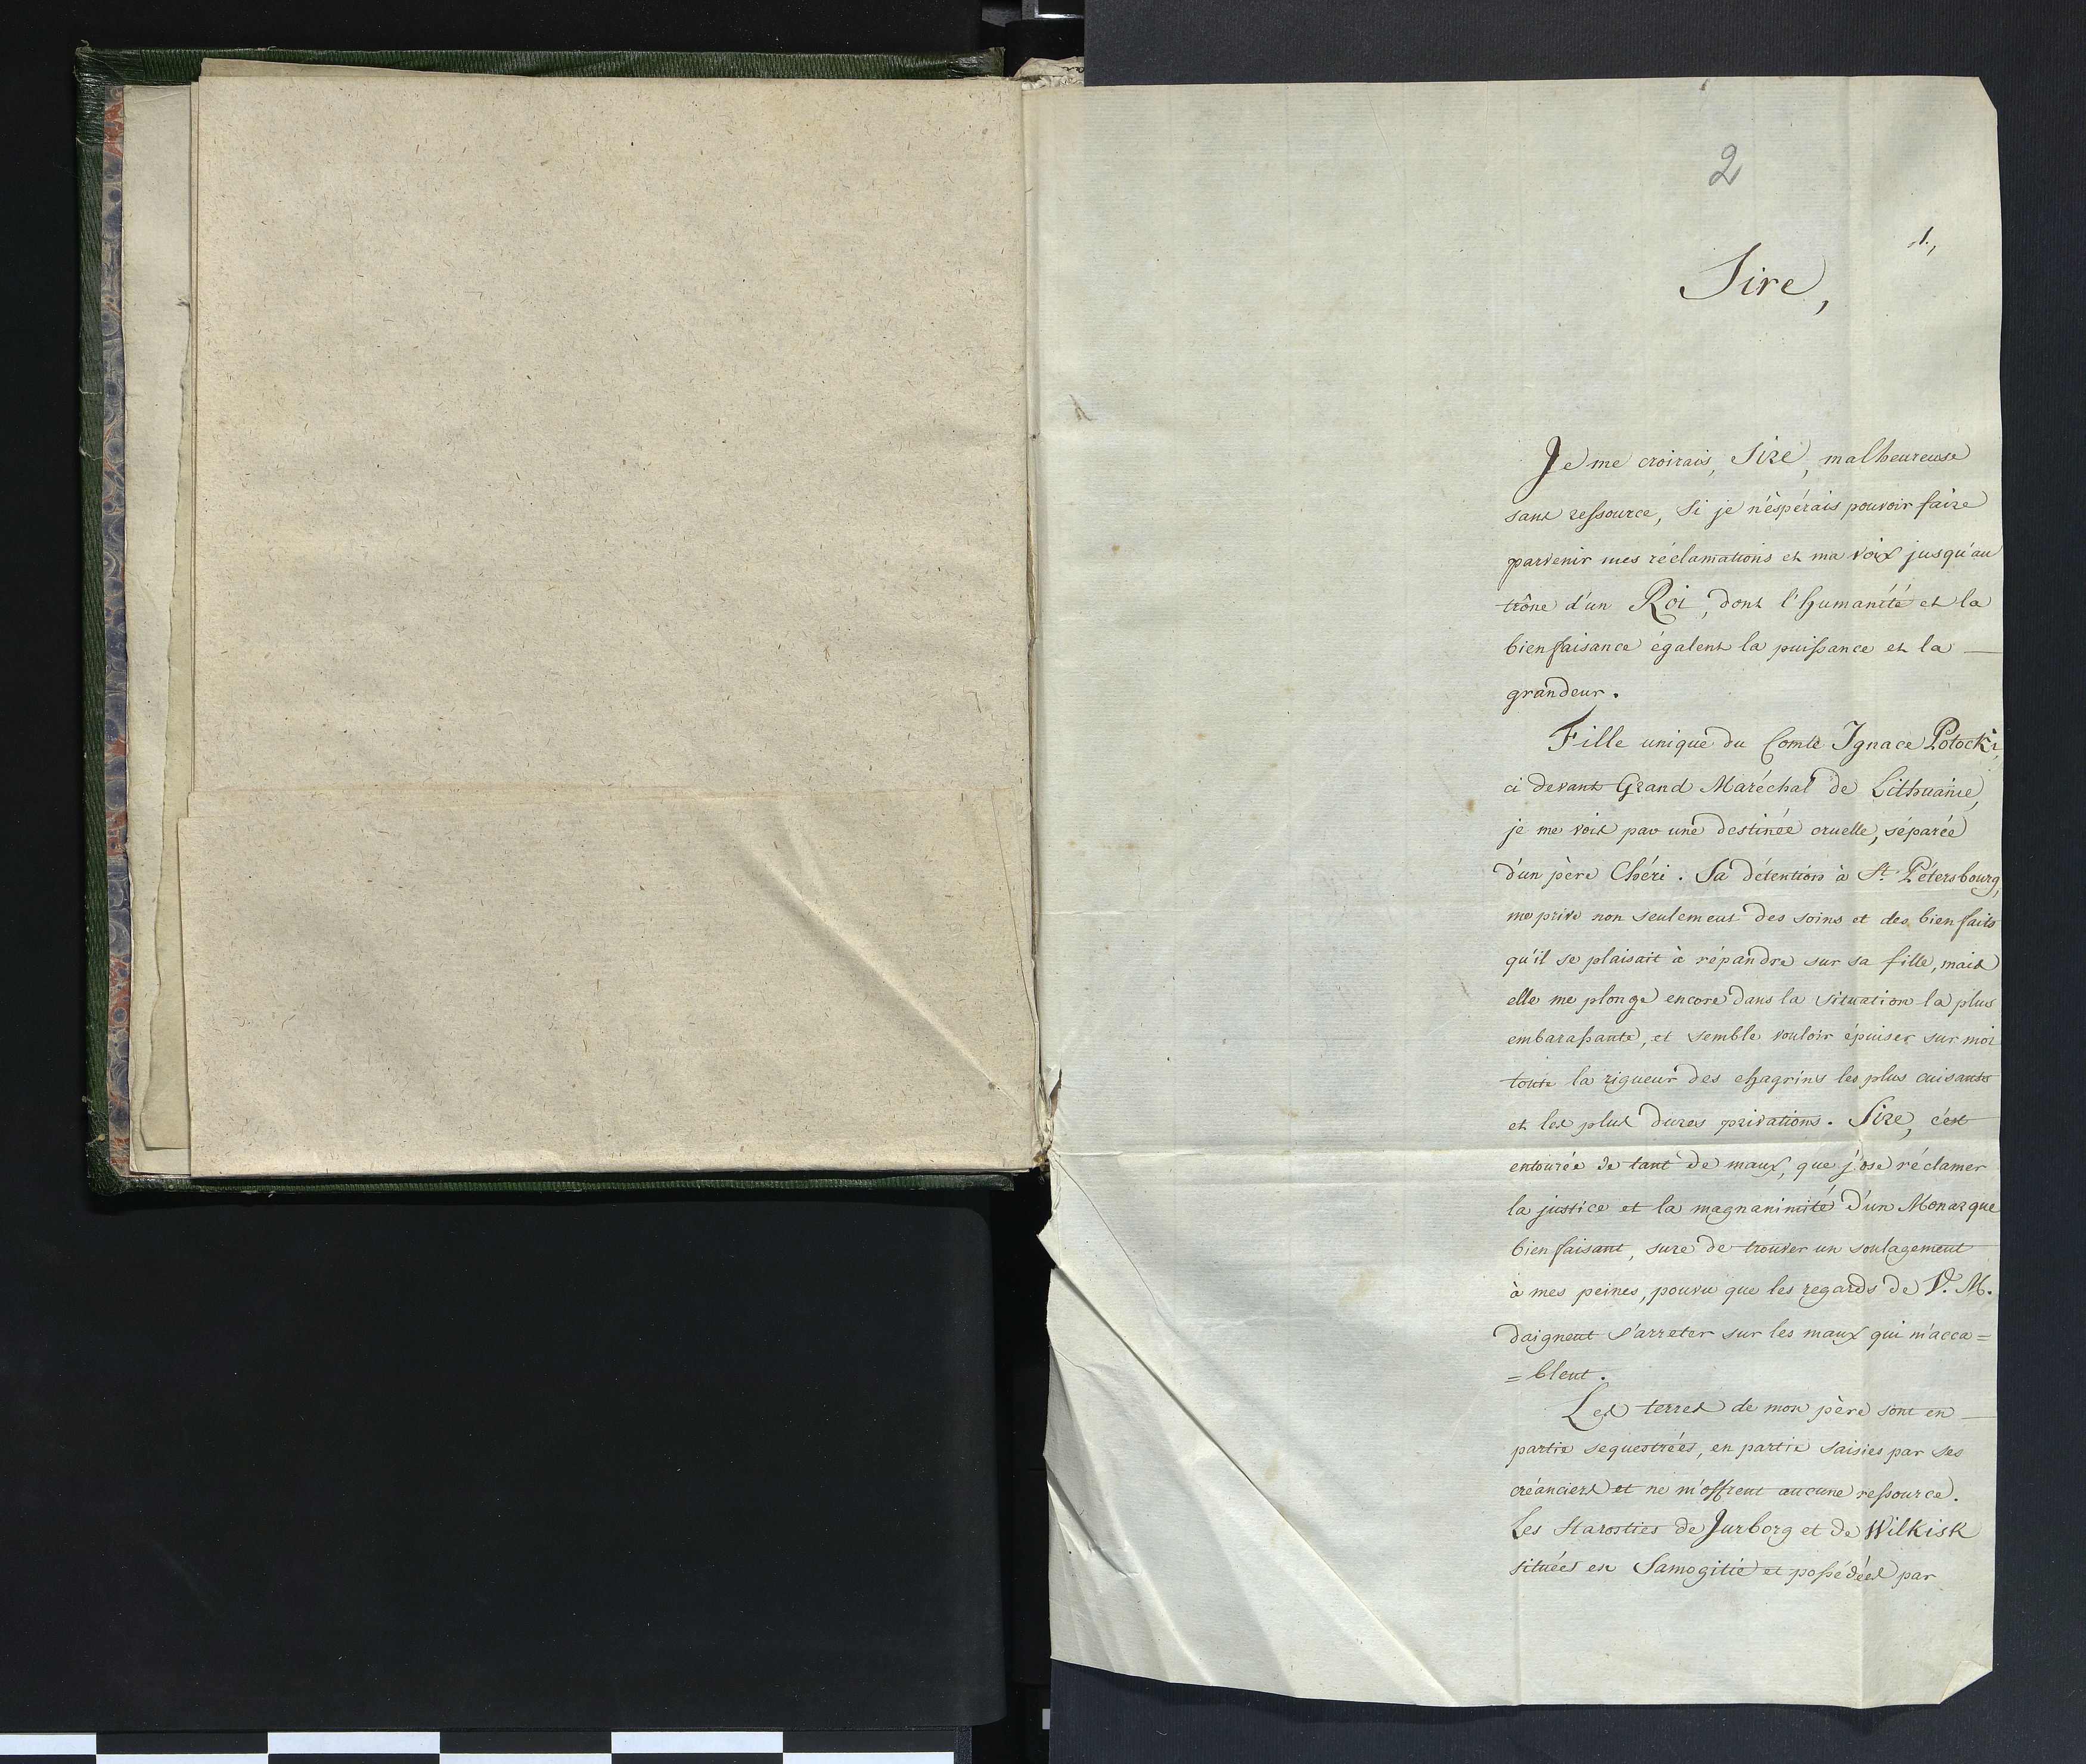 2
1.,
Sire,
Je me croirais, Sire, malheureuse
sans ressource, si je n'éspérais pouvoir faire
parvenir mes réclamations et ma voix jusqu'au
trône d'un Roi, dont l'humanité et la
bienfaisance égalent la puissance et la —
grandeur.
Fille unique du Comte Ignace Potocki,
ci devant Grand Maréchal de Lithuanie,
je me vois par une destinée cruelle, séparée
d'un père chéri. Sa détention à St. Pétersbourg,
me prive non seulement des soins et des bienfaits
qu'il se plaisait à répandre sur sa fille, mais
elle me plonge encore dans la situation la plus
embarassante, et semble vouloir épuiser sur moi
toute la rigueur des chagrins les plus cuisants
et les plus dures privations. Sire, c'est
entourée de tant de maux, que j'ose réclamer
la justice et la magnanimité d'un Monarque
bienfaisant, sure de trouver un soulagement
à mes peines, pouvu que les regards de V. M.
daignent s'arreter sur les maux qui m'acca=
=blent.
Les terres de mon père sont en —
partie sequestrées, en partie saisies par ses
créanciers et ne m'offrent aucune ressource.
Les Starosties de Jurborg et de Wilkisk
situées en Samogitie et possédées par